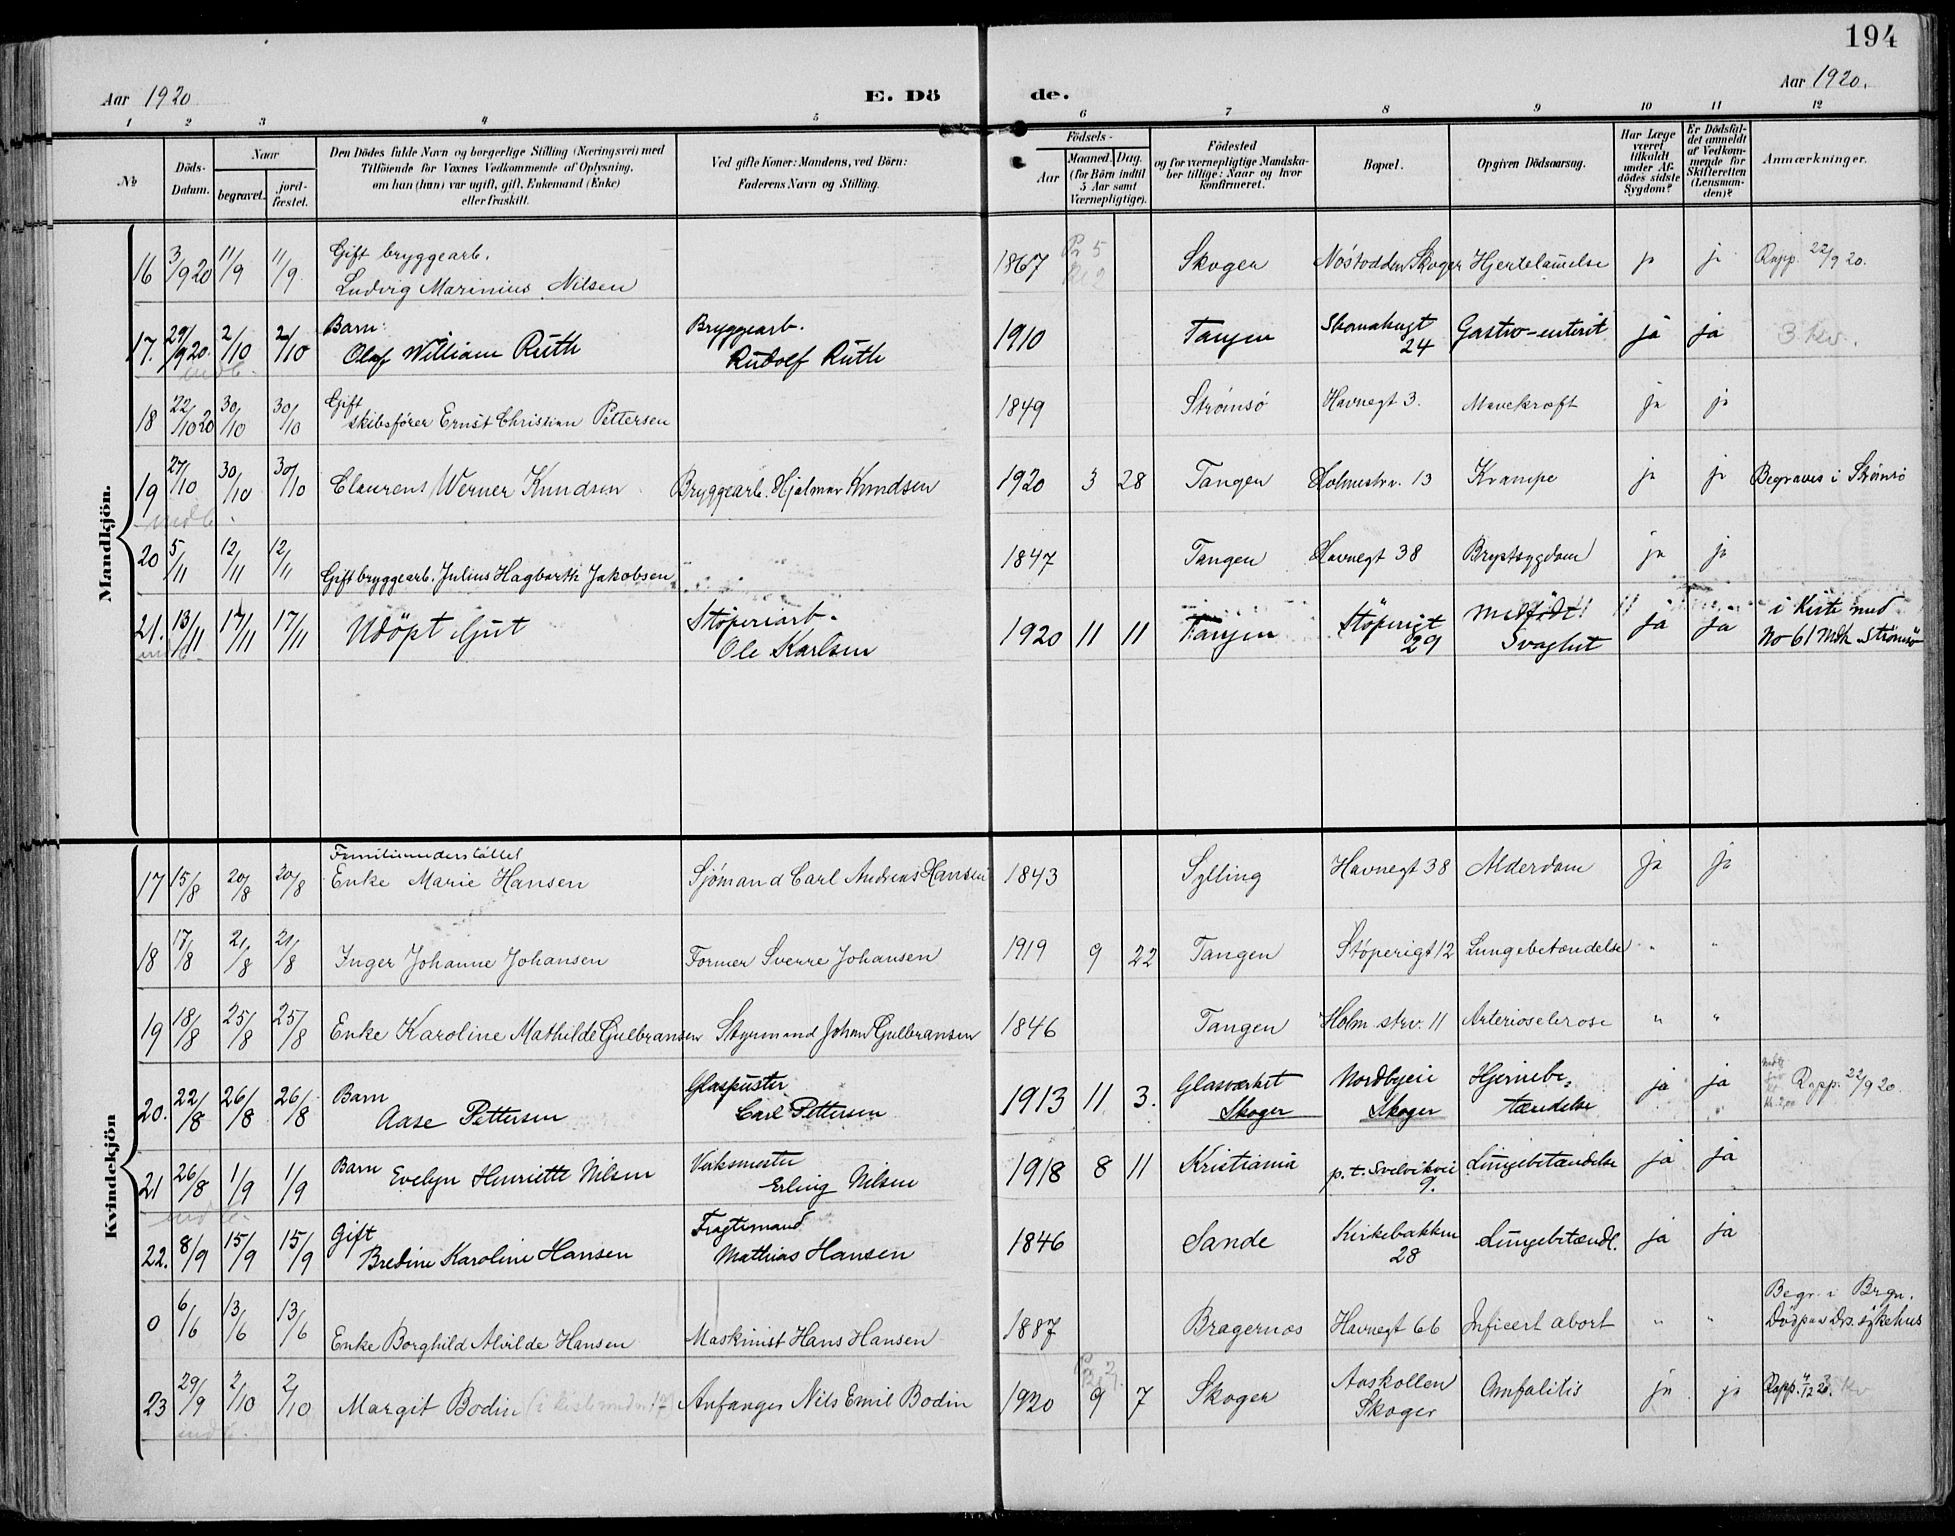 194
Aar 1920 E. Dö de. Aar 1920.
1 2 3 4 5 6 7 8 9 10 11 12
No
Döds-Datum.
Naar
begravet.
jord-fæstet.
Den Dödes fulde Navn og borgerlige Stilling (Næringsvei) med
Tilföiende for Voxnes Vedkommende af Oplysning,
om han (hun) var ugift, gift, Enkemand (Enke)
eller fraskilt.
Ved gifte Koner: Mandens, ved Börn:
Faderens Navn og Stilling.
Födsels-
Aar
Maaned. Dag.
(for Börn indtil
5 Aar samt
Værnepligtige).
Födested
og for værnepligtige Mandska-
ber tillige: Naar og hvor
konfirmeret.
Bopæl.
Opgiven Dödsaarsag.
Har Læge
været
tilkaldt
under Af-
dödes sidste
Sygdom?
Er Dödsfal-
det anmeldt
af Vedkom-
mende for
Skifteretten
(Lensman-
den)?
Anmærkninger.
Mandkjön.
16 3/9 20 11/9 11/9 Gift bryggearb. Ludvig Marinius Nilsen 1867 Skoger Nøstodden Skoger Hjertelamelse ja ja Rapp. 22/9 20.
17. 29/9 20. 2/10 2/10 Barn: Olaf William Ruth Bryggearb. Rudolf Ruth 1910 Tangen Skomakergt 24 Gastro-enterit ja ja 3 kv.
indb.
18 22/10 20 30/10 30/10 Gift skibsfører Ernst Christian Pettersen 1849 Strømsö Havnegt 3. Mavekræft ja ja
19 27/10 30/10 30/10 Claurens Werner Knudsen Bryggearb. Hjalmar Knudsen 1920 3 28 Tangen Holmestrv. 13 Krampe ja ja Begraves i Strømsö
indb.
20 5/11 12/11 12/11 Gift bryggearb. Julius Hagbarth Jakobsen 1847 Tangen Havnegt 38 Brystsygdom ja ja
21. 13/11 17/11 17/11 Udöpt Gut Støperiarb. Ole Karlsen 1920 11 11 Tangen Støperigt 29 Medfødt Svaghet ja ja i Kiste med No 61 Mdk Strømsö
indb.
Kvindekjön
17 15/8 20/8 20/8 Familieunderstøttet Enke Marie Hansen Sjömand Carl Andreas Hansen 1843 Sylling Havnegt 38 Alderdom ja ja
18 17/8 21/8 21/8 Inger Johanne Johansen Former Sverre Johansen 1919 9 22 Tangen Støperigt 12 Lungebetændelse " "
19 18/8 25/8 25/8 Enke Karoline Mathilde Gulbransen Styrmand Johan Gulbransen 1846 Tangen Holm.strv. 11 Arteriosclerose " "
20. 22/8 26/8 26/8 Barn Aase Pettersen Glaspuster Carl Pettersen 1913 11 3. Glasværket Skoger Nordbyeie Skoger Hjernebetændelse ja ja Rapp. 22/9 20.
21 26/8 1/9 1/9 Barn Evelyn Henriette Nilsen Verksmester Erling Nilsen 1918 8 11 Kristiania p.t. Svelvikvei 9. Lungebetændelse ja ja
indb.
22. 8/9 15/9 15/9 Gift Bredine Karoline Hansen Fragtemand Mathias Hansen 1846 Sande Kirkebakken 28 Lungebetændl. ja ja
0 6/6 13/6 13/6 Enke Borghild Alvilde Hansen Maskinist Hans Hansen 1887 Bragernæs Havnegt 66 Inficert abort " " Begr. i Brgn. Död paa Drs. sykehus
23 29/9 2/10 2/10 Margit Bodin (i kiste med nr 17) Anfanger Nils Emil Bodin 1920 9 7 Skoger Aaskollen Skoger Omfalitis ja ja Rapp. 4/12 20.
indb.